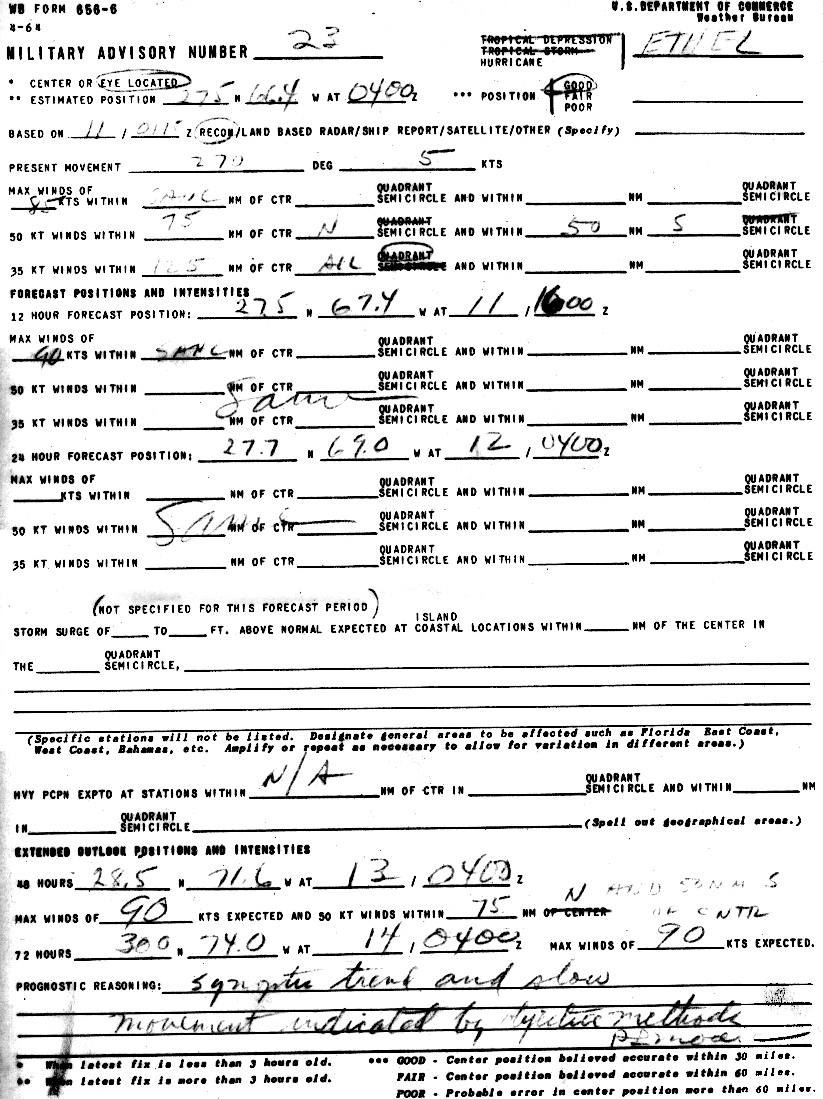 WB FORM 656-6 U.S. DEPARTMENT OF COMMERCE
4-64 Weather Bureau
MILITARY ADVISORY NUMBER 23 TROPICAL DEPRESSION TROPICAL STORM HURRICANE ETHEL
* CENTER OR EYE LOCATED
** ESTIMATED POSITION 275 N 66.4 W AT 0400 Z *** POSITION GOOD FAIR POOR
BASED ON 11 / 0115 Z RECON/LAND BASED RADAR/SHIP REPORT/SATELLITE/OTHER (Specify)
PRESENT MOVEMENT 270 DEG 5 KTS
MAX WINDS OF QUADRANT QUADRANT
85 KTS WITHIN NM OF CTR SEMICIRCLE AND WITHIN NM SEMICIRCLE
75 QUADRANT QUADRANT
50 KT WINDS WITHIN NM OF CTR N SEMICIRCLE AND WITHIN 50 NM S SEMICIRCLE
QUADRANT QUADRANT
35 KT WINDS WITHIN 125 NM OF CTR ALL SEMICIRCLE AND WITHIN NM SEMICIRCLE
FORECAST POSITIONS AND INTENSITIES
12 HOUR FORECAST POSITION: 275 N 67.4 W AT 11 / 1600 Z
MAX WINDS OF QUADRANT QUADRANT
90 KTS WITHIN SAME NM OF CTR SEMICIRCLE AND WITHIN NM SEMICIRCLE
QUADRANT QUADRANT
50 KT WINDS WITHIN NM OF CTR SEMICIRCLE AND WITHIN NM SEMICIRCLE
Same QUADRANT QUADRANT
35 KT WINDS WITHIN NM OF CTR SEMICIRCLE AND WITHIN NM SEMICIRCLE
24 HOUR FORECAST POSITION: 27.7 N 69.0 W AT 12 / 0400 Z
MAX WINDS OF QUADRANT QUADRANT
KTS WITHIN NM OF CTR SEMICIRCLE AND WITHIN NM SEMICIRCLE
QUADRANT QUADRANT
50 KT WINDS WITHIN Same NM OF CTR SEMICIRCLE AND WITHIN NM SEMICIRCLE
QUADRANT QUADRANT
35 KT WINDS WITHIN NM OF CTR SEMICIRCLE AND WITHIN NM SEMICIRCLE
(NOT SPECIFIED FOR THIS FORECAST PERIOD) ISLAND
STORM SURGE OF TO FT. ABOVE NORMAL EXPECTED AT COASTAL LOCATIONS WITHIN NM OF THE CENTER IN
QUADRANT
THE SEMICIRCLE,
(Specific stations will not be listed. Designate general areas to be affected such as Florida East Coast,
West Coast, Bahamas, etc. Amplify or repeat as necessary to allow for variation in different areas.)
N/A QUADRANT
HVY PCPN EXPTD AT STATIONS WITHIN NM OF CTR IN SEMICIRCLE AND WITHIN NM
QUADRANT
IN SEMICIRCLE (Spell out geographical areas.)
EXTENDED OUTLOOK POSITIONS AND INTENSITIES
48 HOURS 28.5 N 71.6 W AT 13 / 0400 Z
N AND 50 NM S
MAX WINDS OF 90 KTS EXPECTED AND 50 KT WINDS WITHIN 75 NM OF CENTER OF CNTR
72 HOURS 300 N 74.0 W AT 14 / 0400 Z MAX WINDS OF 90 KTS EXPECTED.
PROGNOSTIC REASONING: synoptic trend and slow
movement indicated by methods
* When latest fix is less than 3 hours old. *** GOOD - Center position believed accurate within 30 miles.
** When latest fix is more than 3 hours old. FAIR - Center position believed accurate within 60 miles.
POOR - Probable error in center position more than 60 miles.